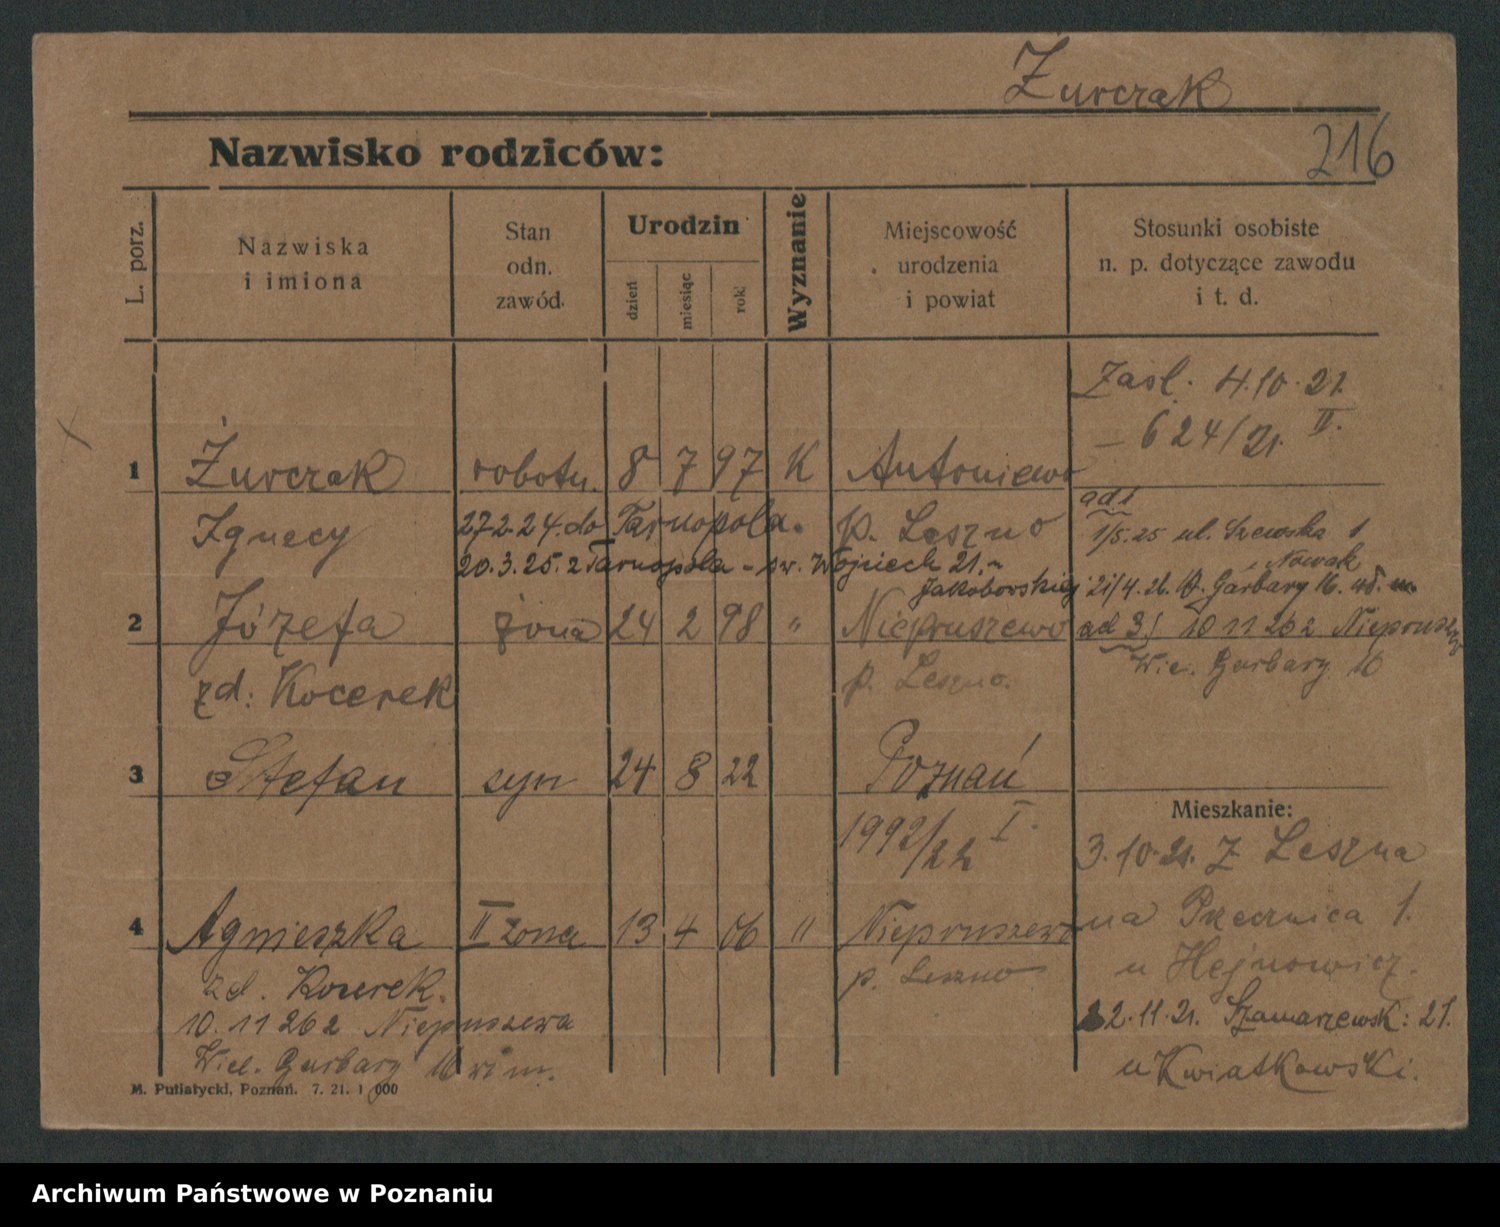 Żurczak
216
Nazwisko rodziców:
L. porz.
Nazwiska
i imiona
Stan
odn.
zawód.
Urodzin
dzień
miesiąc
rok
Wyznanie
Miejscowość
urodzenia
i powiat
Stosunki osobiste
n. p. dotyczące zawodu
i t. d.
Zaśl. 4.10.21.
– 624/21. II.
1 Żurczak robotn. 8 7 97 K Antoniewo
Ignacy
27.2.24. do Tarnopola.
p. Leszno
20.3.25. z Tarnopola – św. Wojciech 21.
Jakóbowskiej
ad 1
1/5.25 ul. Szewska 1
Nowak
21/4.26. W. Garbary 16.
2 Józefa żona 24 2 98 " Niepruszewo
zd: Kocerek
p. Leszno.
ad 3) 10 11 26 z
Wie. Garbary 16
3 Stefan syn 24 8 22 Poznań
1992/22 I.
4 Agnieszka II żona 13 4 06 " Niepruszewo
zd. Kocerek.
p. Leszno
10.11 26 z Niepruszewa
Wiel. Garbary 16
Mieszkanie:
3.10.21. Z Leszna
na Przecznica 1.
u Hejnowicz.
22.11.21. Szamarzewsk: 21.
u Kwiatkowski.
M. Putiatycki, Poznań. 7. 21. 1 000
Archiwum Państwowe w Poznaniu